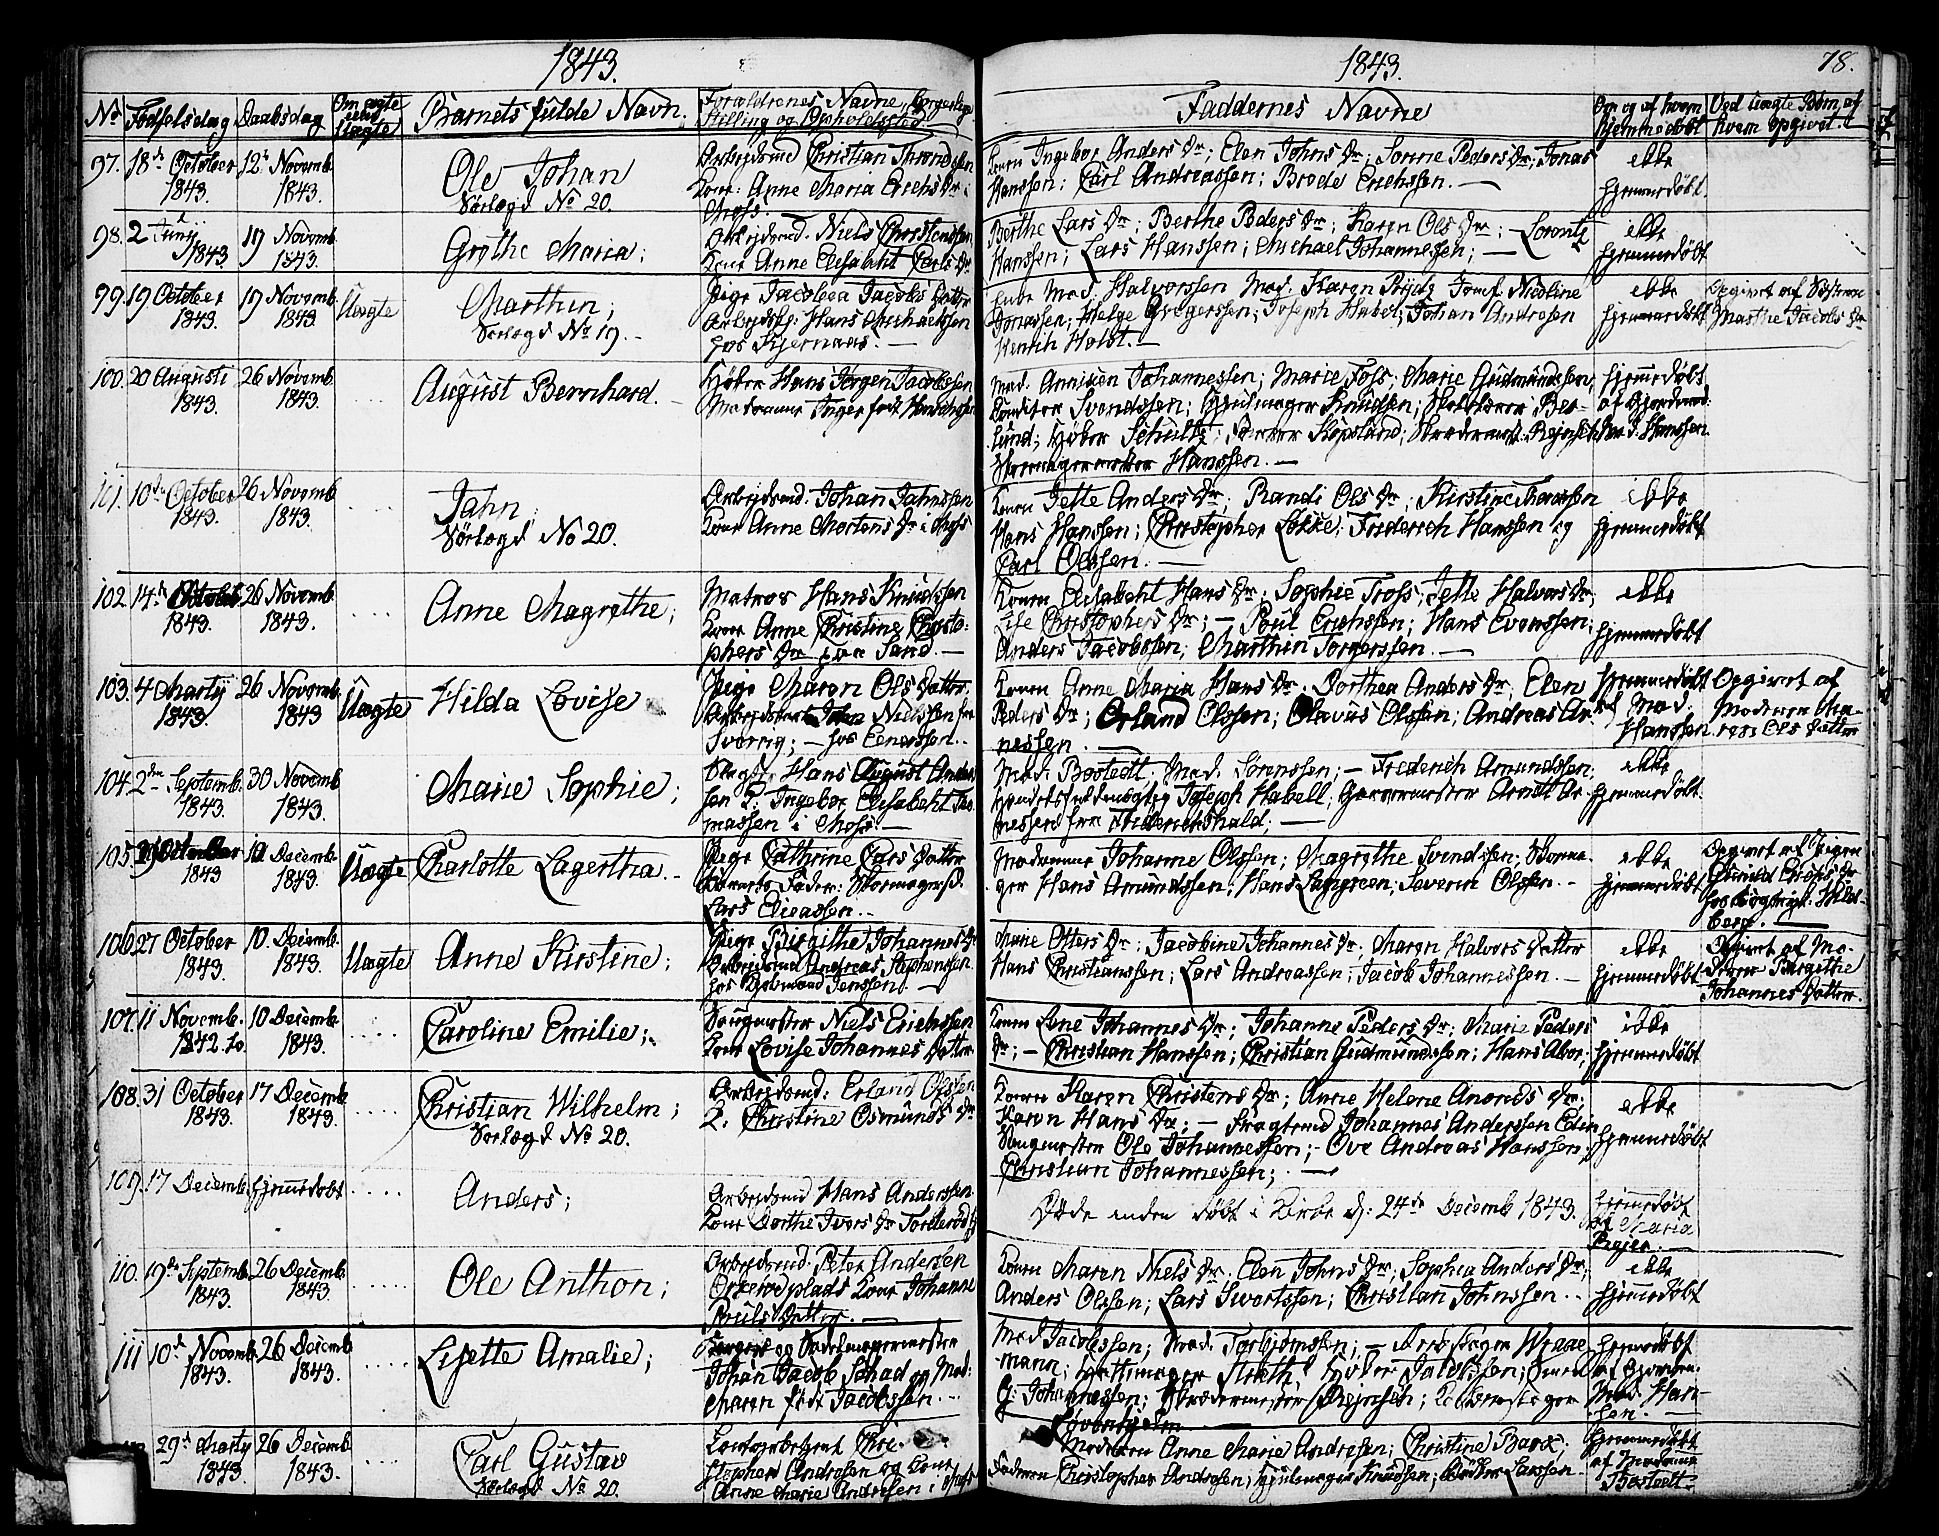 1843.
No Fødselsdag Daabsdag Om ægte eller Uægte Barnets fulde Navn. Forældrenes Navne, borgerlige Stilling og Opholdssted
97. 18de October 1843. 12te Novemb. 1843.
Ole Johan
Sørlægd No 20.
Arbejdsmd Christian Throndsen
Kone: Anne Maria Erichs Dr i
Moss.
98. 2 Juny 1843. 19 Novemb. 1843.
Grethe Maria;
Arbejdsmd. Niels Christenssen
Kone Anne Elisabeht Carls Dr
99. 19. October 1843. 19 Novemb. 1843. Uægte
Marthin;
Sørlægd No 19.
Pige Jacobea Jacobs Datter
Arbejdsk: Hans Michaelssen
hos Kjernaas. —
100. 20 Augusti 1843. 26 Novemb. 1843.
August Bernhard.
Høker Hans Jørgen Jacobssen
Madamme Inger født Hendrichsen
101. 10de October 1843. 26 Novemb. 1843.
Jahn;
Sørlægd No 20.
Arbejdsmd. Johan Jahnssen
Kone Anne Mortens Dr i Moss
102. 14de October 1843. 26 Novemb 1843.
Anne Magrethe;
Matros Hans Knudssen
Kone Anne Christine Christo-
phers Dr paa Sand. —
103. 4 Marty 1843. 26 Novemb. 1843 Uægte
Hilda Lovise
Pige Maren Ols Datter
Nielssen fra
Sverrig; — hos Enerssen.
104. 2den Septemb. 1843. 30 Novemb 1843.
Marie Sophie;
Hans August Anders-
sen K. Ingebor Elisabeht Tho-
massen i Moss. —
105. October 1843 10 Decemb. 1843. Uægte
Charlotte Lagertha.
Pige Cathrine Lars Datter
Barnets Fader: Skomagersd.
Lars Elieassen.
106. 27 October 1843. 10. Decemb. 1843. Uægte
Anne Kirstine;
Pige Birgithe Johannes Dr
Arbejdsmd Andreas Stephenssen
hos Jenssen. —
107. 11 Novemb. 1842. to 10 Decemb 1843.
Caroline Emilie;
Saugmester Niels Erichssen
Kone Lovise Johannes Datter
108. 31 October 1843. 17 Decemb 1843.
Christian Wilhelm;
Sørlægd No 20.
Arbejdsmd: Erland Olssen
K. Christine Osmunds Dr
109. 17 Decemb. hjemmedøbt
Anders;
Arbejdsmd Hans Anderssen
Kone Dorthe Ivers Dr Torderød
110. 19de Septemb. 1843. 26 Decemb. 1843.
Ole Anthon;
Arbejdsmd. Peter Andersen
Orkerødplads Kone Johanne
Pouls Datter. —
111 10de Novemb. 1843. 26 Decemb. 1843.
Lisette Amalie;
Borger og Sadelmagermester
Johan Jacob Schad og Mad:
Maren født Jacobssen.
29de Marty 1843. 26 Decemb 1843.
Carl Gustav
Sørlægd No 20.
Chri-
stopher Andresen og Kone
Anne Marie Andresen i Moss
1843. 78.
Faddernes Navne
Om og af hvem hjemmedøbt. Ved uægte Børn, af hvem opgivet.
Konen Ingebor Anders Dr; Elen Johns Dr; Sonne Peders Dr; Jonas
Hanssen; Carl Andreassen; Brode Erichssen. —
ikke hjemmedøbt.
Berthe Lars Dr; Berthe Peders Dr; Karen Ols Dr; — Lorentz
Hanssen; Lars Hanssen; Michael Johannessen; —
ikke hjemmedøbt
Enke Mad. Halvorssen Mad. Karen Prydz Jomf. Nicoline
Jonassen; Helge Gregerssen; Joseph Habel; Johan Andresen
Henrich Holst. —
ikke hjemmedøbt
Opgivet af Søsteren
Marthe Jacobs Dr
Mad. Annichen Johannessen; Marie Foss; Marie Gudmundssen;
Svendssen; Hjulmager Knudsen; Ber-
lund; Høker Schultz; Kopsland; Skrædermest: Rejersch
Hanssen. —
hjemmedøbt af Mad. Hanssen.
Konen Jette Anders Dr; Randi Ols Dr; Kirstine Thomassen
Hans Hanssen; Christopher Løkke; Friderich Hanssen og
Carl Olssen. —
ikke hjemmedøbt.
Konen Elisabeht Hans Dr; Sophie Tross; Jette Halvors Dr;
Christophers Dr; — Poul Erichssen; Hans Evenssen;
Anders Jacobssen; Marthin Torgerssen. —
ikke hjemmedøbt
Konen Anne Maria Hans Dr; Dorthea Anders Dr; Elen
Peders Dr; Erland Olssen; Olavus Olssen; Andreas Ar-
nessen. —
hjemmedøbt af Mad. Hanssen.
Opgivet af
Moderen Ma-
ren Ols Datter
Mad. Bostedt. Mad. Sørenssen; — Frederich Amundssen;
Handelsfuldmægtig Joseph Habell; Garvermester Arndt Ar-
nessen fra Friderichshald; —
ikke hjemmedøbt.
Madamme Johanne Olssen; Magrethe Svendssen; Skoma-
ger Hans Amundssen; Hans Langreen; Severin Olssen. —
ikke hjemmedøbt.
Opgivet af Pigen
hos Hild-
berg. —
Marie Otters Dr; Jacobine Johannes Dr; Maren Halvors Datter
Hans Christianssen; Lars Andreassen; Jacob Johannessen. —
ikke hjemmedøbt
Opgivet af Mo-
deren Birgithe
Johannes Datter.
Konen Lene Johannes Dr; Johanne Peders Dr; Marie Peders
Dr; — Christian Hanssen; Christian Gudmundssen; Hans
ikke hjemmedøbt
Konen Karen Christens Dr; Anne Helene Amonds Dr;
Karen Hans Dr; — Johannes Anderssen
Saugmester Ole Johannessen; — Ove Andreas Hanssen;
Christian Johannessen; —
ikke hjemmedøbt
Døde inden døbt i Kirke d: 24de Decemb 1843.
hjemmedøbt af Maria
Konen Maren Niels Dr; Elen Johns Dr; Sophia Anders Dr;
Anders Olssen; Lars Svortssen; Christian Johnssen. —
ikke hjemmedøbt
Mad. Jacobssen; Mad. Torbjørnssen; —
mann; Hattemager Høker Jacobssen;
G: Johannessen; Skrædermester Rejersch;
Løvenholm
hjemmedøbt
Mad. Han-
sen. —
Moderen Anne Marie Andresen; Christine Back;
Faderen Christopher Andresen; Hjulmager Knudssen; Larssen
hjemmedøbt
af Madame
Bostedt.